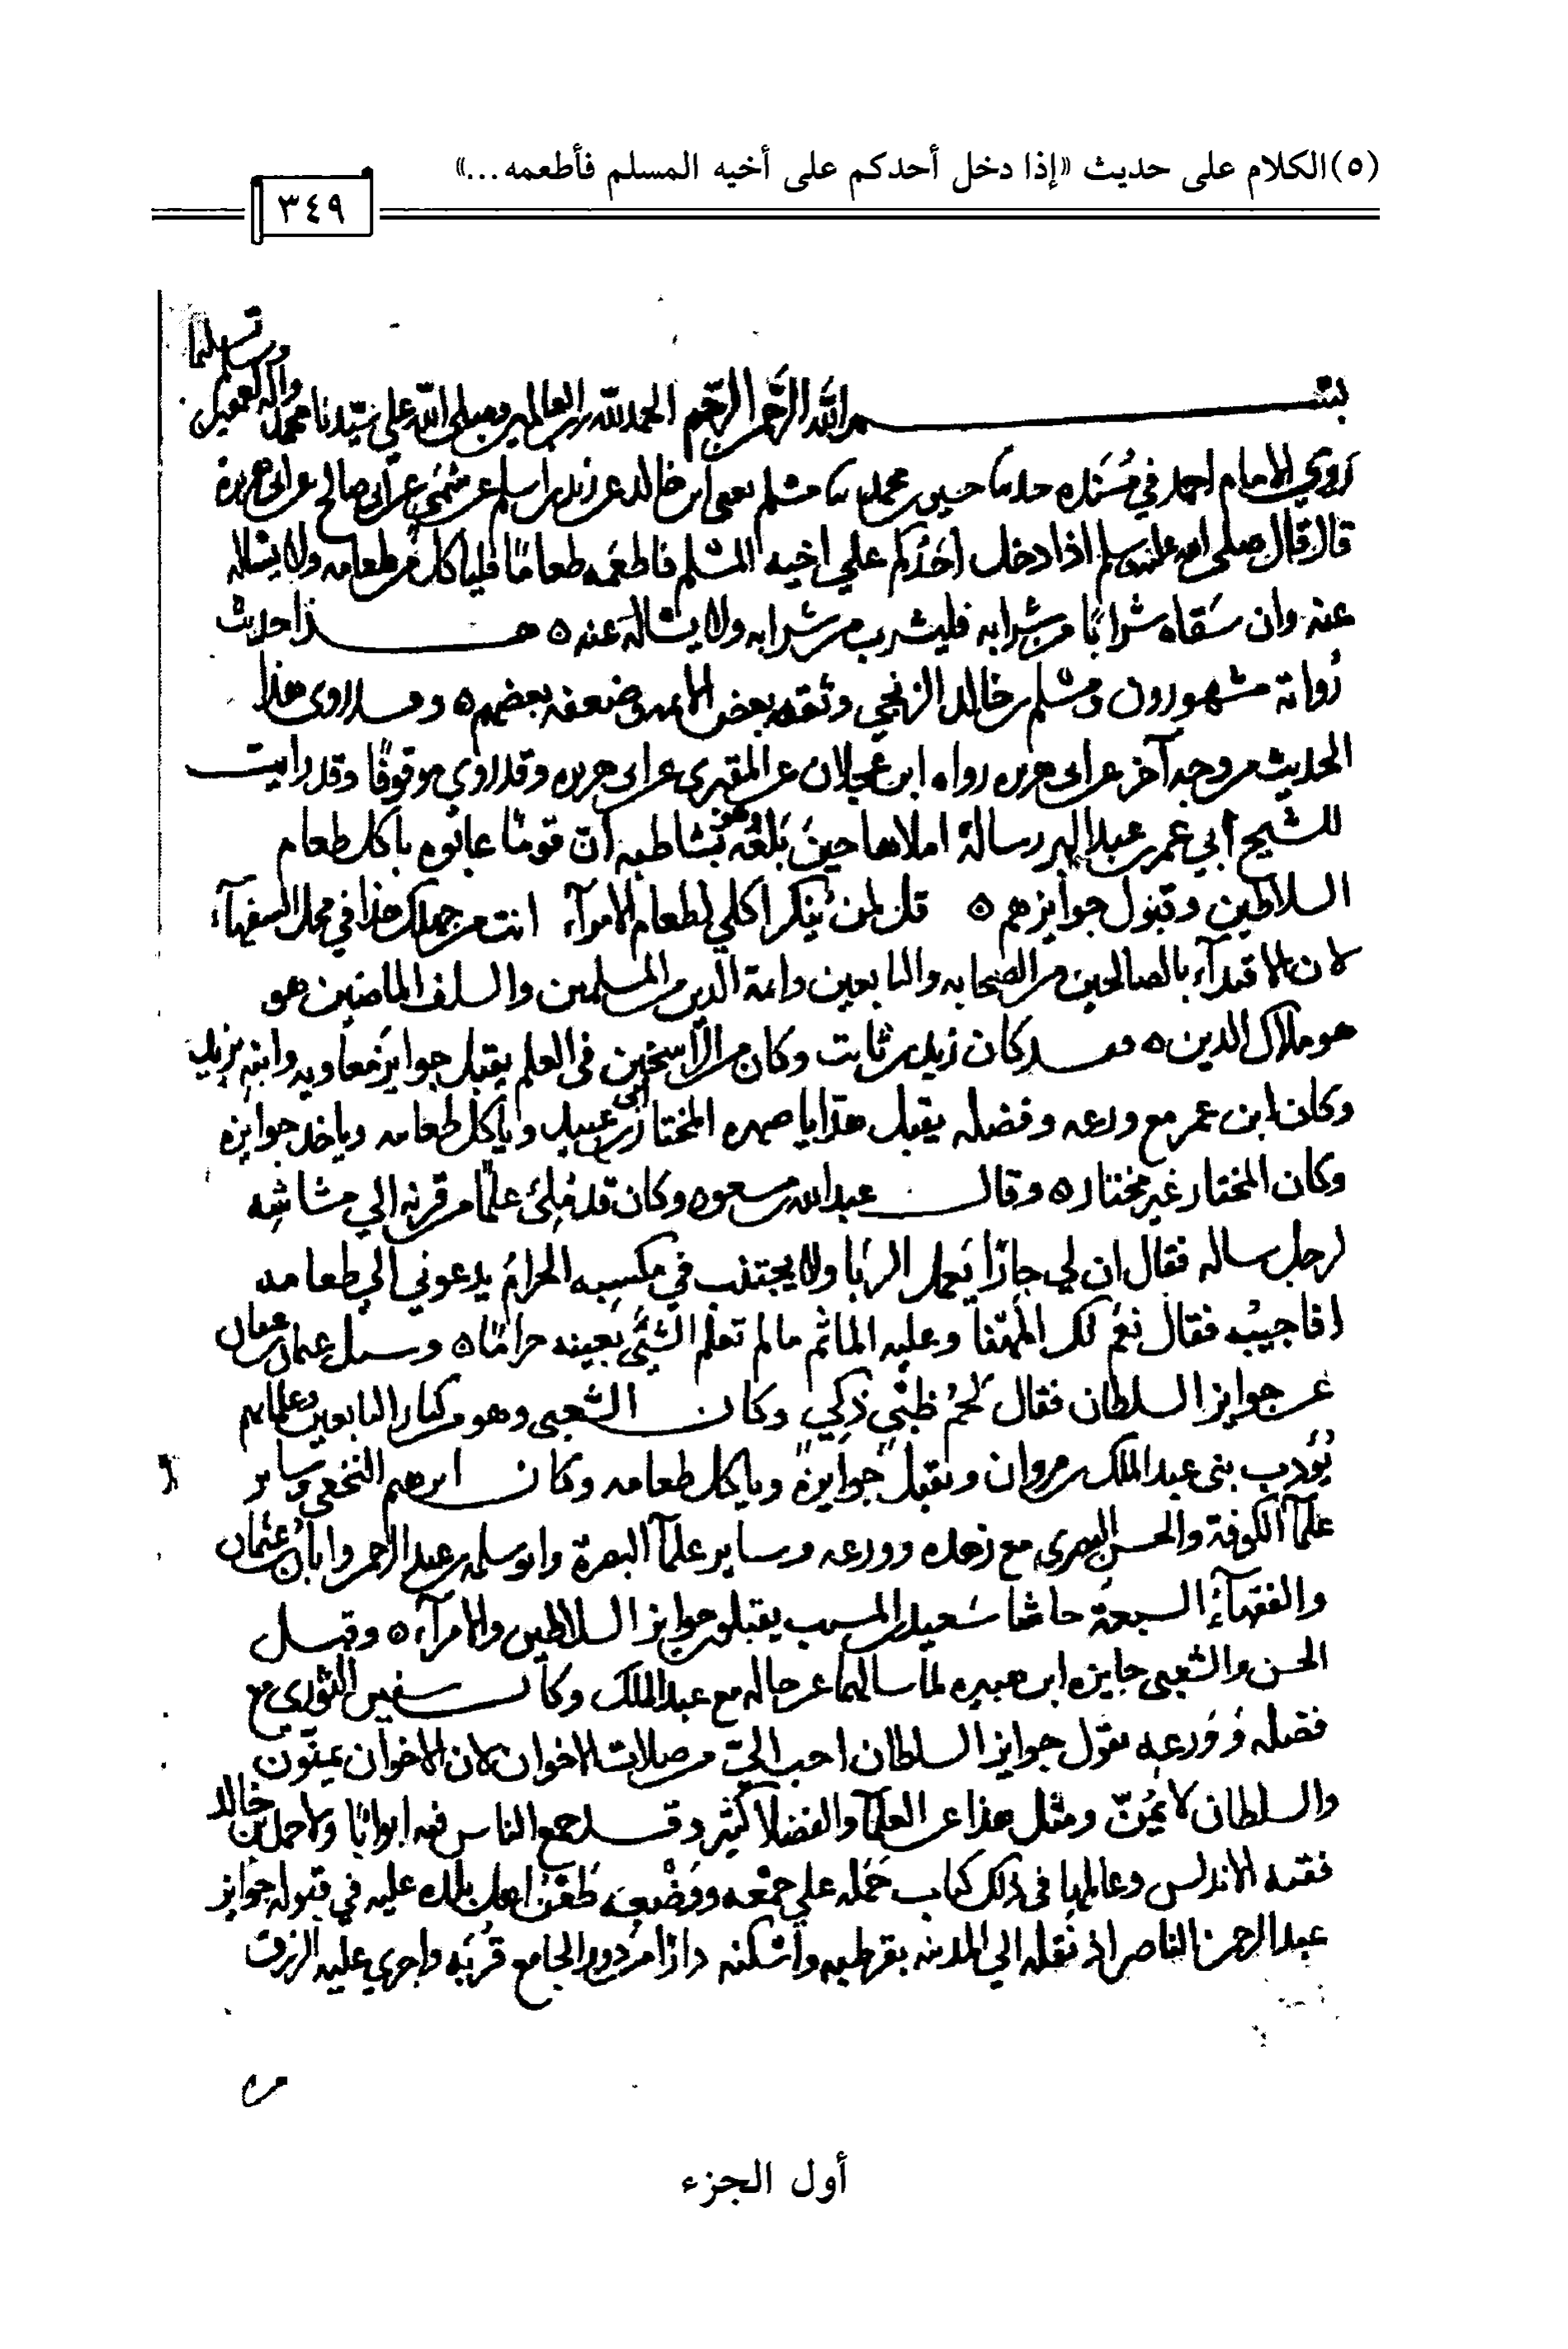 (٥) الكلام على حديث «إذا دخل أحدكم على أخيه المسلم فأطعمه...»
٣٤٩
بسم الله الرحمن الرحيم الحمد لله رب العالمين وصلى الله على سيدنا محمد وآله وسلم تسليما
روي الامام احمد في مسنده حدثنا حسين بن محمد ثنا مسلم يعني ابن خالد عن زيد بن اسلم عن سمي عن أبي صالح عن ابي هريرة
قال قال صلى الله عليه وسلم اذا دخل احدكم علي اخيه المسلم فاطعمه طعاما فلياكل من طعامه ولا يساله
عنه وان سقاه شرابا من شرابه فليشرب من شرابه ولا يساله عنه ٥ هذا حديث
رواته مشهورون ومسلم بن خالد الزنجي وثقه بعض الايمه وضعفه بعضهم ٥ وقد روى هذا
الحديث من وجه آخر عن ابي هريره رواه ابن عجلان عن المقبري عن ابي هريره وقد روي موقوفا وقد رايت
للشيخ أبي عمر بن عبد البر رسالة املاها حين بلغه وهو بشاطبه أن قوما عابوه باكل طعام
السلاطين وقبول جوايزهم ٥ قل لمن ينكر اكلي لطعام الامرآء انت من جهلك هذا في محل السفهآء
لان الاقتدآء بالصالحين من الصحابه والتابعين وايمة الدين من المسلمين والسلف الماضين هو
هو ملاك الدين ٥ فقد كان زيد بن ثابت وكان من الراسخين في العلم يقبل جوايز معاويه وابنه يزيد
وكان ابن عمر مع ورعه وفضله يقبل هدايا صهره المختار بن أبي عبيد وياكل طعامه وياخذ جوايزه
وكان المختار غير مختار ٥ وقال عبد الله بن مسعود وكان قد ملئ علما من قرنه الي مشاشه
لرجل ساله فقال ان لي جارا يعمل الربا ولا يجتنب في مكسبه الحرام يدعوني الي طعامه
افاجيبه فقال نعم لك المهنا وعليه الماثم مالم تعلم الشئ بعينه حراما ٥ وسيل عثمان بن عفان
عن جوايز السلطان فقال لحم ظبي ذكي وكان الشعبي وهو من كبار التابعين وعلمايهم
يؤدب بني عبد الملك بن مروان ويقبل جوايزه وياكل طعامه وكان ابرهيم النخعي وساير
علمآ الكوفة والحسن البصري مع زهده وورعه وساير علمآ البصرة وابو سلمه بن عبد الرحمن وابان بن عثمان
والفقهآء السبعة حاشا سعيد بن المسيب يقبلون جوايز السلاطين والامرآء ٥ وقبل
الحسن والشعبي جايزه ابن هبيره لما سالهما عن حاله مع عبد الملك وكان سفين الثوري مع
فضله وورعه يقول جوايز السلطان احب الي من صلات الاخوان لان الاخوان يمنون
والسلطان لا يمن ومثل هذا عن العلمآ والفضلا كثير وقد جمع الناس فيه ابوابا ولاحمد بن خالد
فقيه الاندلس وعالمها في ذلك كتاب حمله علي جمعه ووضعه طعن اهل بلده عليه في قبوله جوايز
عبد الرحمن الناصر اذ نقله الي المدينه بقرطبه واسكنه دارا من دور الجامع قربه واجري عليه الرزق
من
أول الجزء